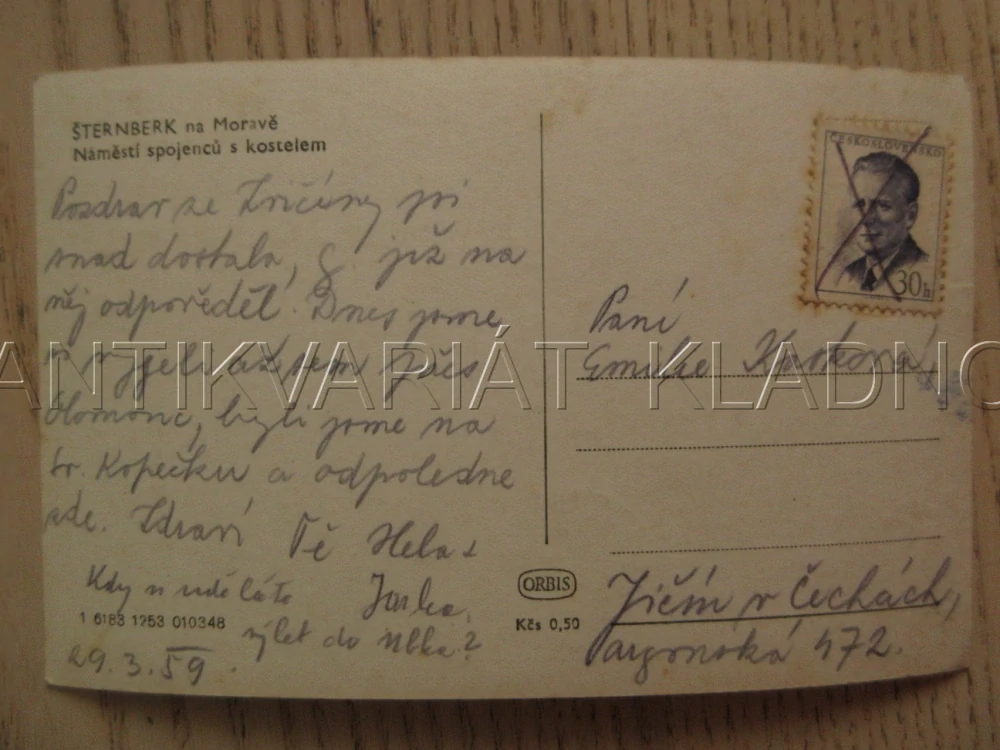 ŠTERNBERK na Moravě
Náměstí spojenců s kostelem
Pozdrav ze Zvičiny jsi
snad dostala, již na
něj odpověděl. Dnes jsme
vyjeli až sem přes
Olomouc, byli jsme na
sv. Kopečku a odpoledne
zde. Zdraví Tě Hela +
Kdy si uděláte
výlet do
1 6183 1253 010348
29.3.59.
ORBIS
Kčs 0,50
ČESKOSLOVENSKO
30h
Paní
Emilie
Jičín v Čechách,
472.
ANTIKVARIÁT KLADNO